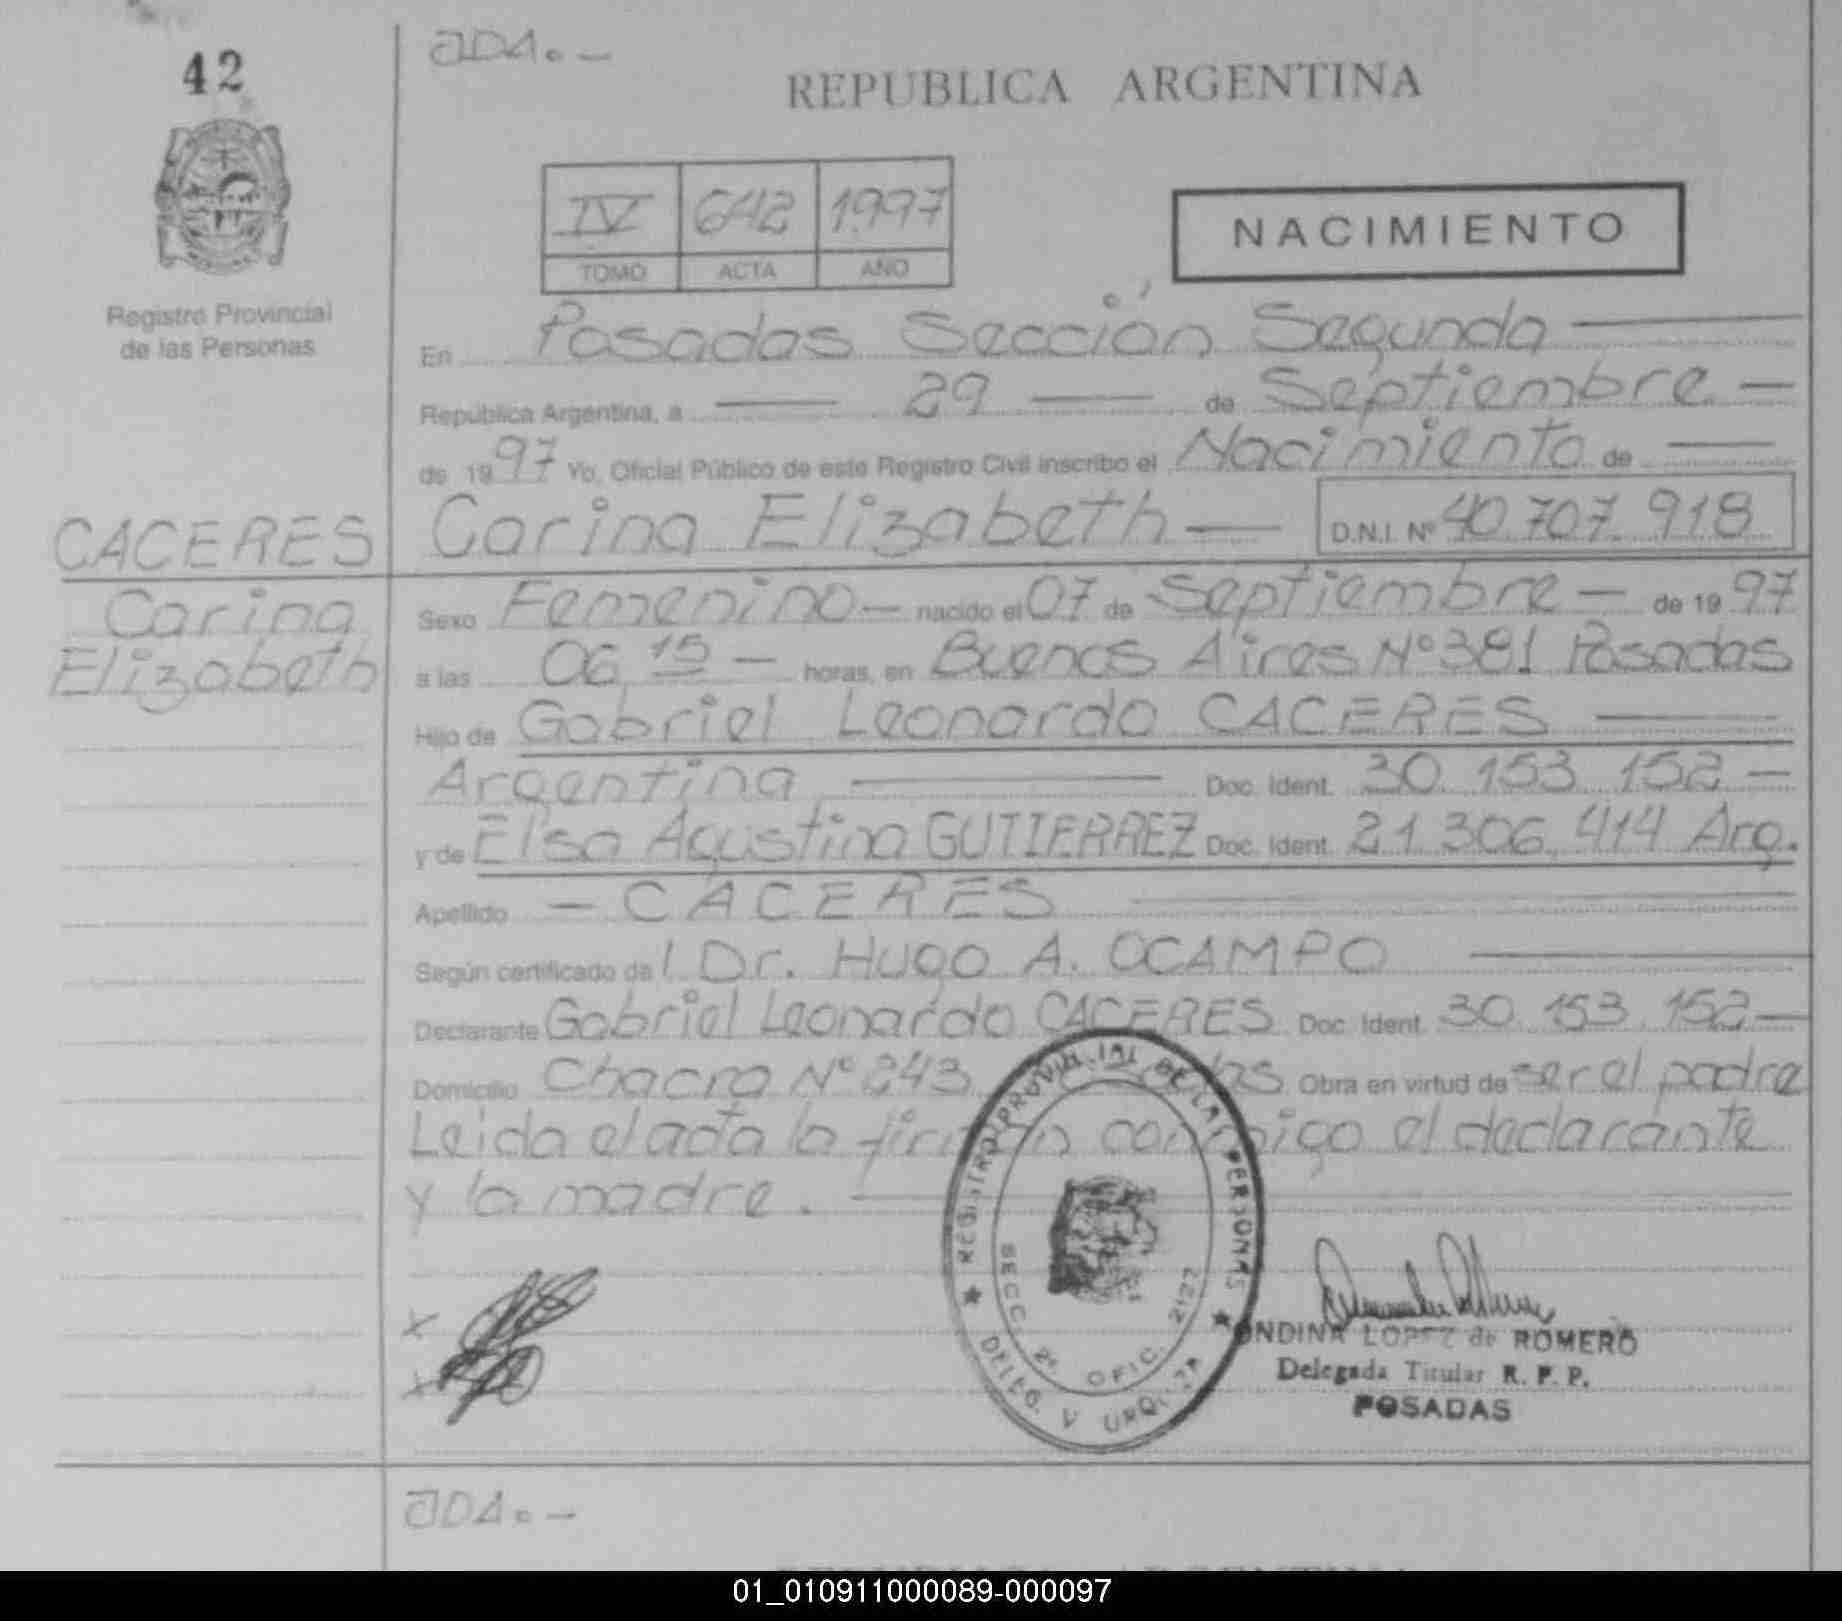 42
REPUBLICA ARGENTINA
IV 642 1997
TOMO ACTA AÑO
NACIMIENTO
Registro Provincial
de las Personas
En Posadas Sección Segunda
República Argentina, a 29 de Septiembre
de 1997 Yo, Oficial Público de este Registro Civil inscribo el Nacimiento de
CACERES
Carina
Elizabeth
Carina Elizabeth D.N.I. Nº 40.707.918
Sexo Femenino nacido el 07 de Septiembre de 1997
a las 06 15 horas, en Buenos Aires Nº 381 Posadas
Hijo de Gabriel Leonardo CACERES
Argentina Doc. Ident. 30.153.152
y de Elsa Agustina GUTIERREZ Doc. Ident. 21.306.414 Arg.
Apellido CACERES
Según certificado del Dr. Hugo A. OCAMPO
Declarante Gabriel Leonardo CACERES Doc. Ident. 30.153.152
Domicilio Chacra Nº 243 Obra en virtud de ser el padre
Leida el acta la firman conmigo el declarante
y la madre.
REGISTRO PROVINCIAL DE LAS PERSONAS
SECC. 2ª OFIC. 2127
DELEG. V. URQUIZA
ONDINA LOPEZ de ROMERO
Delegada Titular R. P. P.
POSADAS
01_010911000089-000097